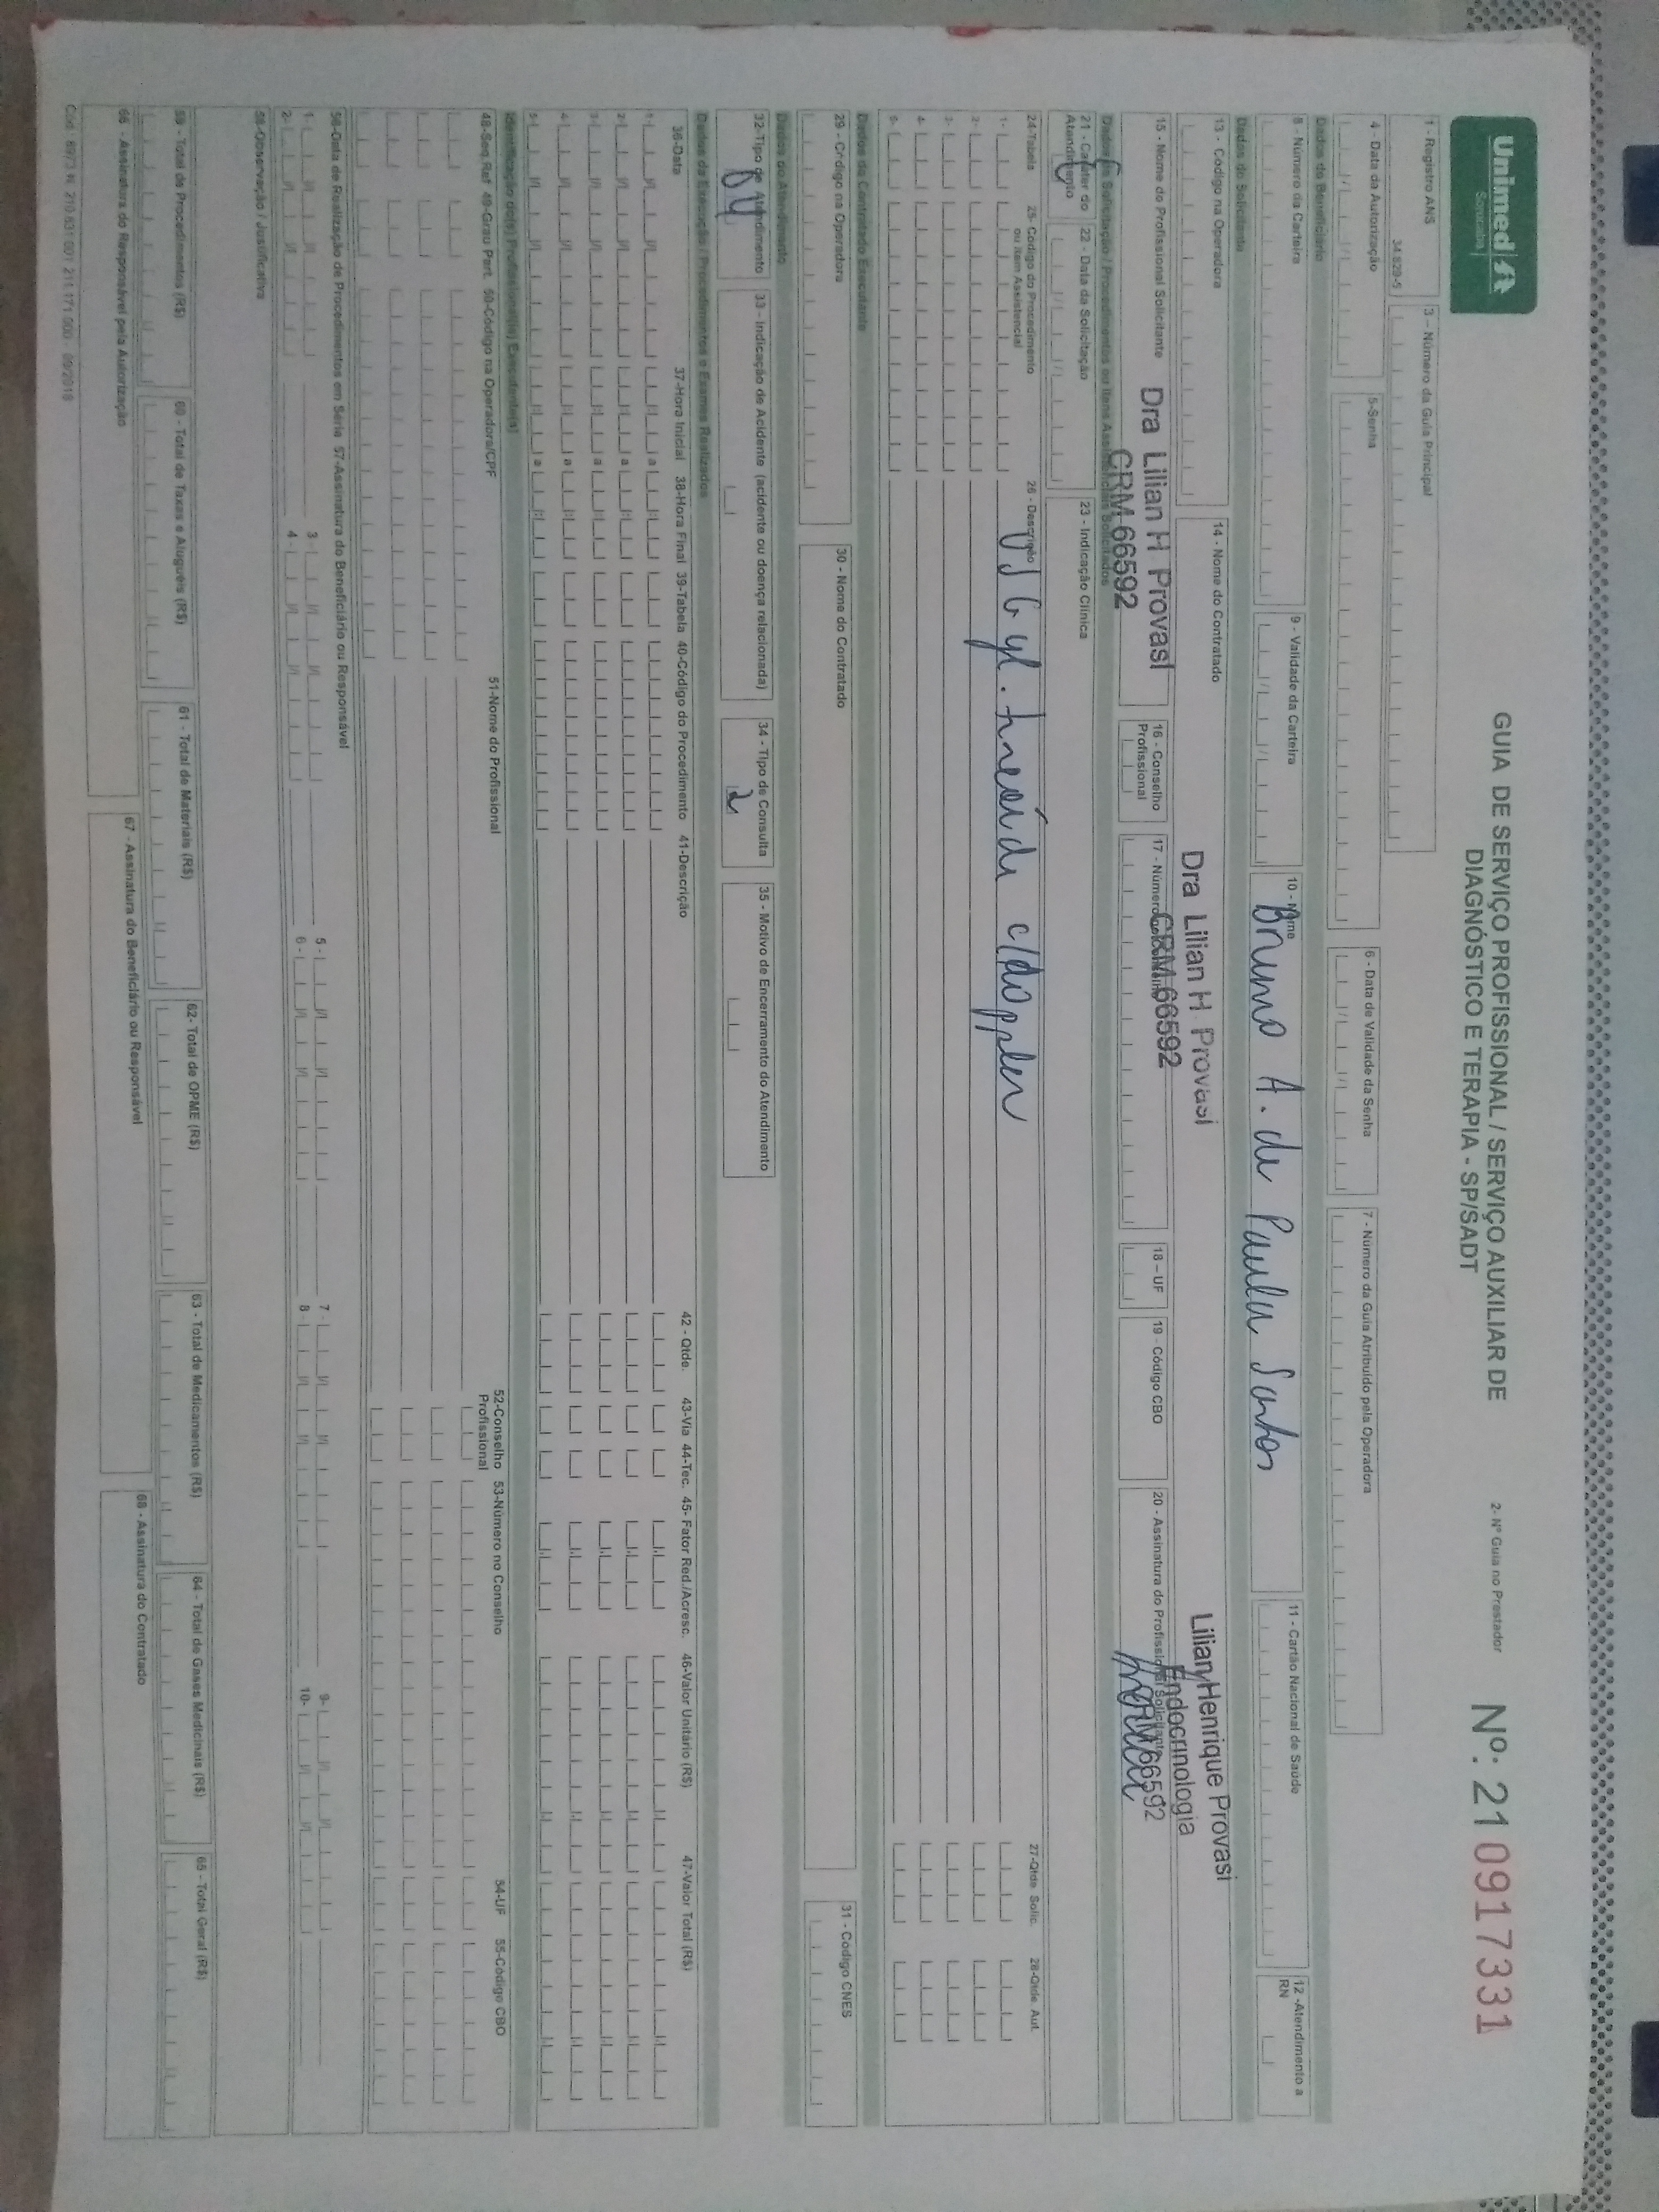 Unimed
Sorocaba
GUIA DE SERVIÇO PROFISSIONAL / SERVIÇO AUXILIAR DE
DIAGNÓSTICO E TERAPIA - SP/SADT
2- Nº Guia no Prestador
Nº: 210917331
1 - Registro ANS
34.829-5
3 – Número da Guia Principal
4 - Data da Autorização
5-Senha
6 - Data de Validade da Senha
7 - Número da Guia Atribuído pela Operadora
Dados do Beneficiário
8 - Número da Carteira
9 - Validade da Carteira
10 - Nome
Bruno A. de Paula Santos
11 - Cartão Nacional de Saúde
12 -Atendimento a
RN
Dados do Solicitante
13 - Código na Operadora
14 - Nome do Contratado
Dra Lilian H Provasi
CRM 66592
Lilian Henrique Provasi
Endocrinologia
CRM 66592
15 - Nome do Profissional Solicitante
Dra Lilian H Provasi
CRM 66592
16 - Conselho
Profissional
17 - Número no Conselho
18 – UF
19 - Código CBO
20 - Assinatura do Profissional Solicitante
Dados da Solicitação / Procedimentos ou Itens Assistenciais Solicitados
21 - Caráter do
Atendimento
22 - Data da Solicitação
23 - Indicação Clínica
24-Tabela
25- Código do Procedimento
ou Item Assistencial
26 - Descrição
27-Qtde. Solic.
28-Qtde. Aut.
1-
USG gl. tireóide c/doppler
2-
3-
4-
5-
Dados do Contratado Executante
29 - Código na Operadora
30 - Nome do Contratado
31 - Código CNES
Dados do Atendimento
32-Tipo de Atendimento
04
33 - Indicação de Acidente (acidente ou doença relacionada)
34 - Tipo de Consulta
2
35 - Motivo de Encerramento do Atendimento
Dados da Execução / Procedimentos e Exames Realizados
36-Data
37-Hora Inicial
38-Hora Final
39-Tabela
40-Código do Procedimento
41-Descrição
42 - Qtde.
43-Via
44-Tec.
45- Fator Red./Acresc.
46-Valor Unitário (R$)
47-Valor Total (R$)
1- a
2- a
3- a
4- a
5- a
Identificação do(s) Profissional(is) Executante(s)
48-Seq.Ref
49-Grau Part.
50-Código na Operadora/CPF
51-Nome do Profissional
52-Conselho
Profissional
53-Número no Conselho
54-UF
55-Código CBO
56-Data de Realização de Procedimentos em Série
57-Assinatura do Beneficiário ou Responsável
1- 3- 5- 7- 9-
2- 4- 6- 8 10-
58-Observação / Justificativa
59 - Total de Procedimentos (R$)
60 - Total de Taxas e Aluguéis (R$)
61 - Total de Materiais (R$)
62- Total de OPME (R$)
63 - Total de Medicamentos (R$)
64 - Total de Gases Medicinais (R$)
65 - Total Geral (R$)
66 - Assinatura do Responsável pela Autorização
67 - Assinatura do Beneficiário ou Responsável
68 - Assinatura do Contratado
Cód.: 8973 N. 210.831.001 211.171.000 - 09/2018